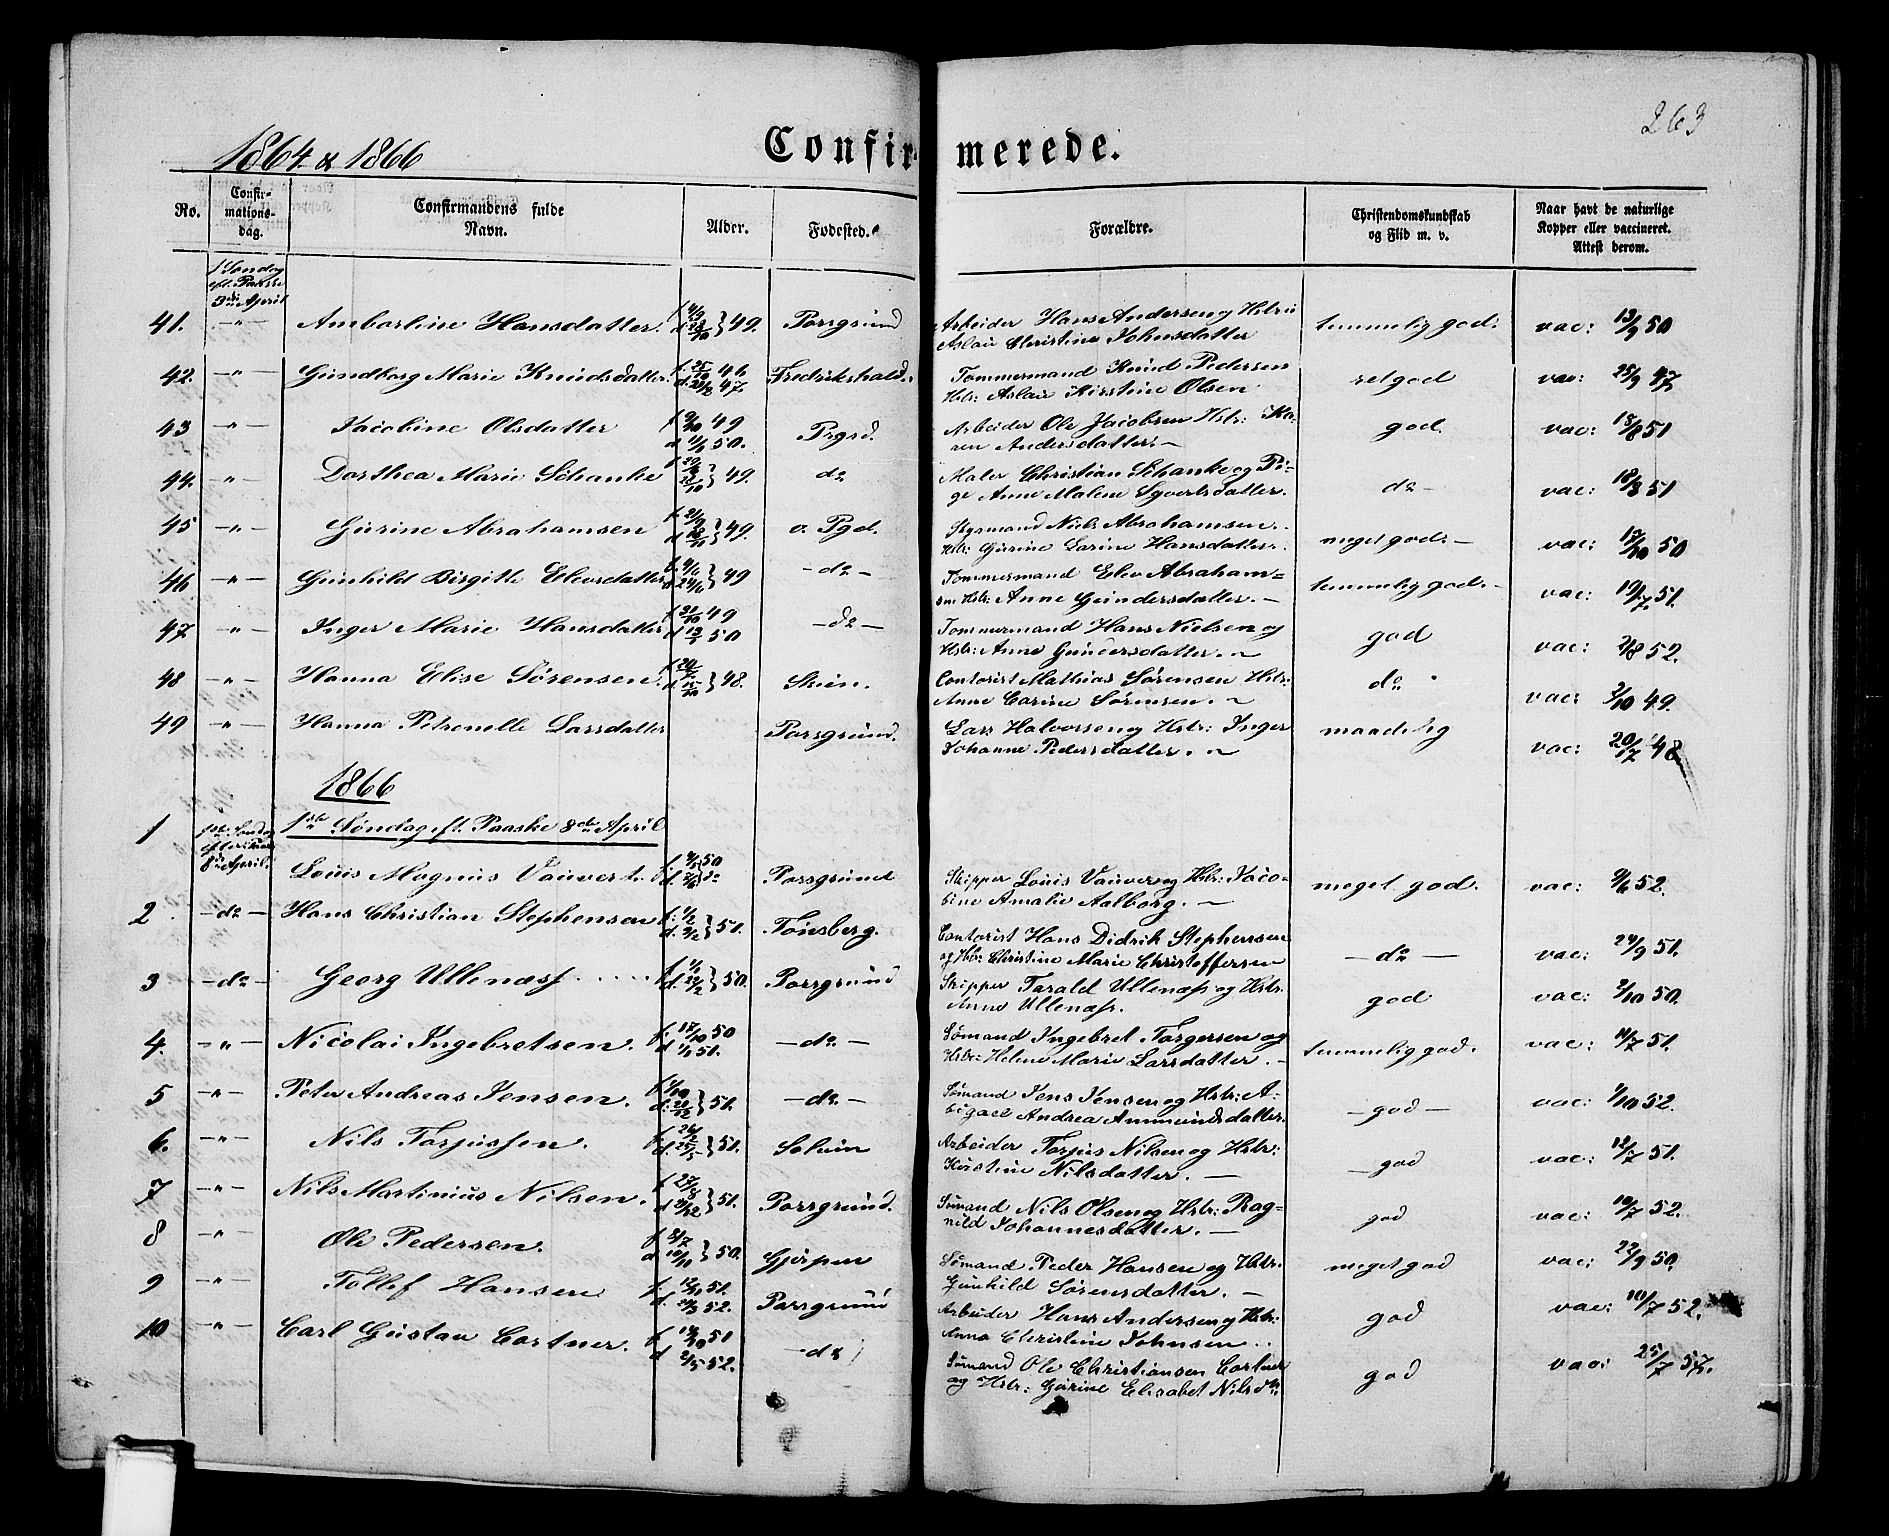 263
1864 & 1866
Confir- merede.
No.
Confir-
mations-
dag.
Confirmandens fulde
Navn.
Alder.
Fødested.
Forældre.
Christendomskundskab
og Flid m. v.
Naar havt de naturlige
Kopper eller vaccineret.
Attest derom.
1 Søndag
eft. Paaske
April
41. —"— Hansdatter. 49. Porsgrund Arbeider Hans Andersen og Hstr: temmelig god. vac: 13/9 50
Aslau Christine Johnsdatter
42. —"— Gundborg Marie Knudsdatter. 46 47. Fredrikshald. Tømmermand Knud Pedersen retgod vac: 25/9 47
Hstr: Aslau Kirstine Olsen
43 —"— Jacobine Olsdatter 49 50. Prgrd. Arbeider Ole Jacobsen Hstr: Ka- god. vac: 18/8 51
ren Andersdatter. —
44. —"— Dorthea Marie Schanke 49. do Maler Christian Schanke og Pi- do — vac: 18/8 51
ge Anne Malene Syvertsdatter.
45 —"— Gurine Abrahamsen 49. v. Pgd. Styrmand Niels Abrahamsen. meget god. — vac: 17/10 50
Hstr: Gurine Larine Hansdatter.
46 —"— Gunhild Birgitte Elevsdatter 49 — do — Tømmermand Elev Abraham= temmelig god. — vac: 19/7 51.
sen Hstr: Anne Gundersdatter. —
47 —"— Inger Marie Hansdatter 49 50 — do — Tømmermand Hans Nielsen og god vac: 2/8 52.
Hstr: Anne Gundersdatter. —
48 —"— Hanna Elise Sørensen. 48. Skien. Contorist Mathias Sørensen Hstr: do vac: 2/10 49.
Anne Carine Sørensen. —
49 —"— Hanna Petronelle Larsdatter Porsgrund. Lars Halvorsen og Hstr: Inger maadelig vac: 20/7 48
Johanne Pedersdatter. —
1866
1ste Søndag eft. Paaske 8de April
1 8de April. Louis Magnus Vauvert. 50 Porsgrund Skipper Louis Vauver og Hstr: Jaco- meget god. vac: 9/6 52.
bine Amalie Aalborg. —
2 — do — Hans Christian Stephensen 51. Tønsberg. Contorist Hans Didrik Stephensen — do — vac: 24/9 51.
og Hstr: Christine Marie Christoffersen
3 — do — Georg Ullenæss 50. Porsgrund Skipper Tarald Ullenæss og Hstr. god vac: 2/10 50.
Anne Ullenæss.
4. —"— Nicolai Ingebretsen. f. 17/10 50 d. 1/1 51. — do — Sømand Ingebret Torgersen og temmelig god. vac: 11/7 51.
Hstr: Helene Marie Larsdatter. —
5 —"— Peter Andreas Jensen. 51. — do — Sømand Jens Jensen og Hstr: A- — god — vac: 1/10 52.
bigael Andrea Ammundsdatter.
6. —"— Nils Torjussen. 51. Solum Arbeider Torjus Nilsen og Hstr: — god vac: 12/7 51.
Kirstine Nilsdatter. —
7 —"— Nils Martinius Nilsen. 51. Porsgrund. Sømand Nils Olsen og Hstr: Rag- god vac: 10/7 52.
nild Johannesdatter. —
8 —"— Ole Pedersen. 50. Gjerpen Sømand Peder Hansen og Hstr. meget god vac: 22/9 50.
Gunhild Sørensdatter. —
9 —"— Tollef Hansen 51. 52. Porsgrund Arbeider Hans Andersen og Hstr: god vac: 10/7 52.
Anna Christine Johnsen.
10 —"— Carl Gustav Cortner. 51 52. — do Sømand Ole Christiansen Cortner god vac: 25/7 57.
og Hstr: Gurine Elisabet Nilsdtr.